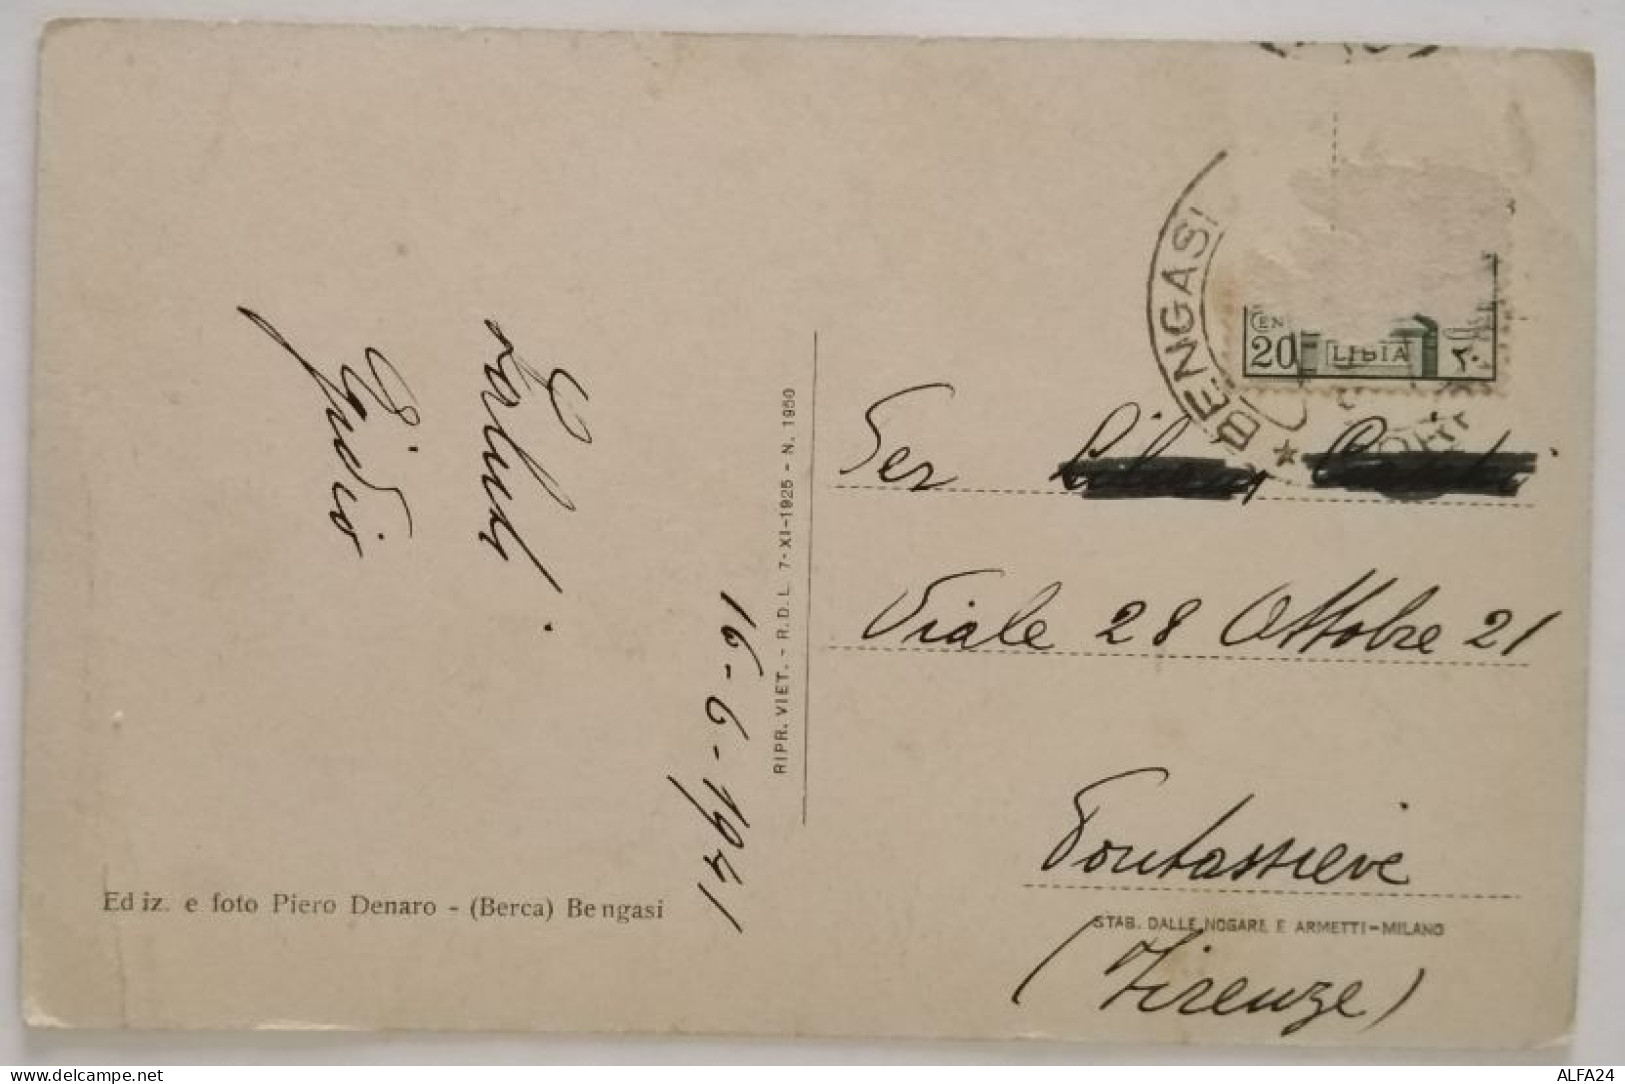 Saluti
Egidio
16-6-1941
RIPR. VIET. - R.D.L. 7-XI-1925 - N. 1950
Ediz. e foto Piero Denaro - (Berca) Bengasi
BENGASI
CEN
20 LIBIA ٢٠
Viale 28 Ottobre 21
Pontassieve
STAB. DALLE NOGARE E ARMETTI-MILANO
(Firenze)
delcampe.net
ALFA24